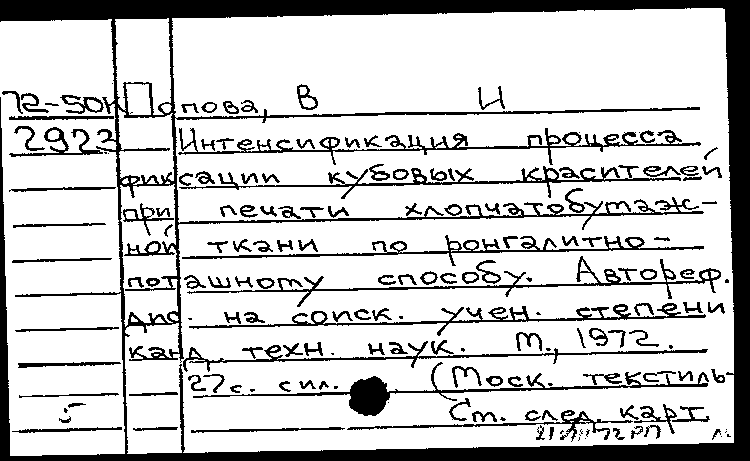 72-50к Попова, В И
2923 Интенсификация процесса
фиксации кубовых красителей
при печати хлопчатобумаж-
ной ткани по ронгалитно-
поташному способу. Автореф.
дис. на соиск. учен. степени
канд. техн. наук. М., 1972.
27 с. с ил. (Моск. текстиль-
5 См. след. карт.